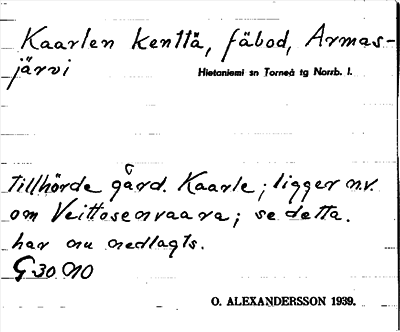 Kaarlen kenttä, fäbod, Armas-
järvi
Hietaniemi sn Torneå tg Norrb. l.
Tillhörde gård. Kaarle; ligger n.v.
om Veittosenvaara; se detta.
har nu nedlagts.
G 30 NO
O. ALEXANDERSSON 1939.